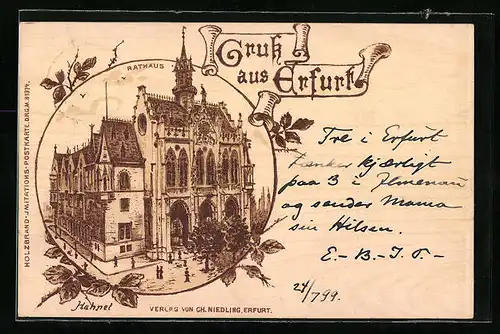 Gruß
aus Erfurt.
RATHAUS
HOLZBRAND-IMITATIONS-POSTKARTE D.R.G.M. 81374.
Tre i Erfurt
tænker kjærligt
paa 3 i Ilmenau
og sender Mama
sin Hilsen.
E.-B.-I.T.-
24/7 99.
Hahnel
VERLAG VON CH. NIEDLING, ERFURT.